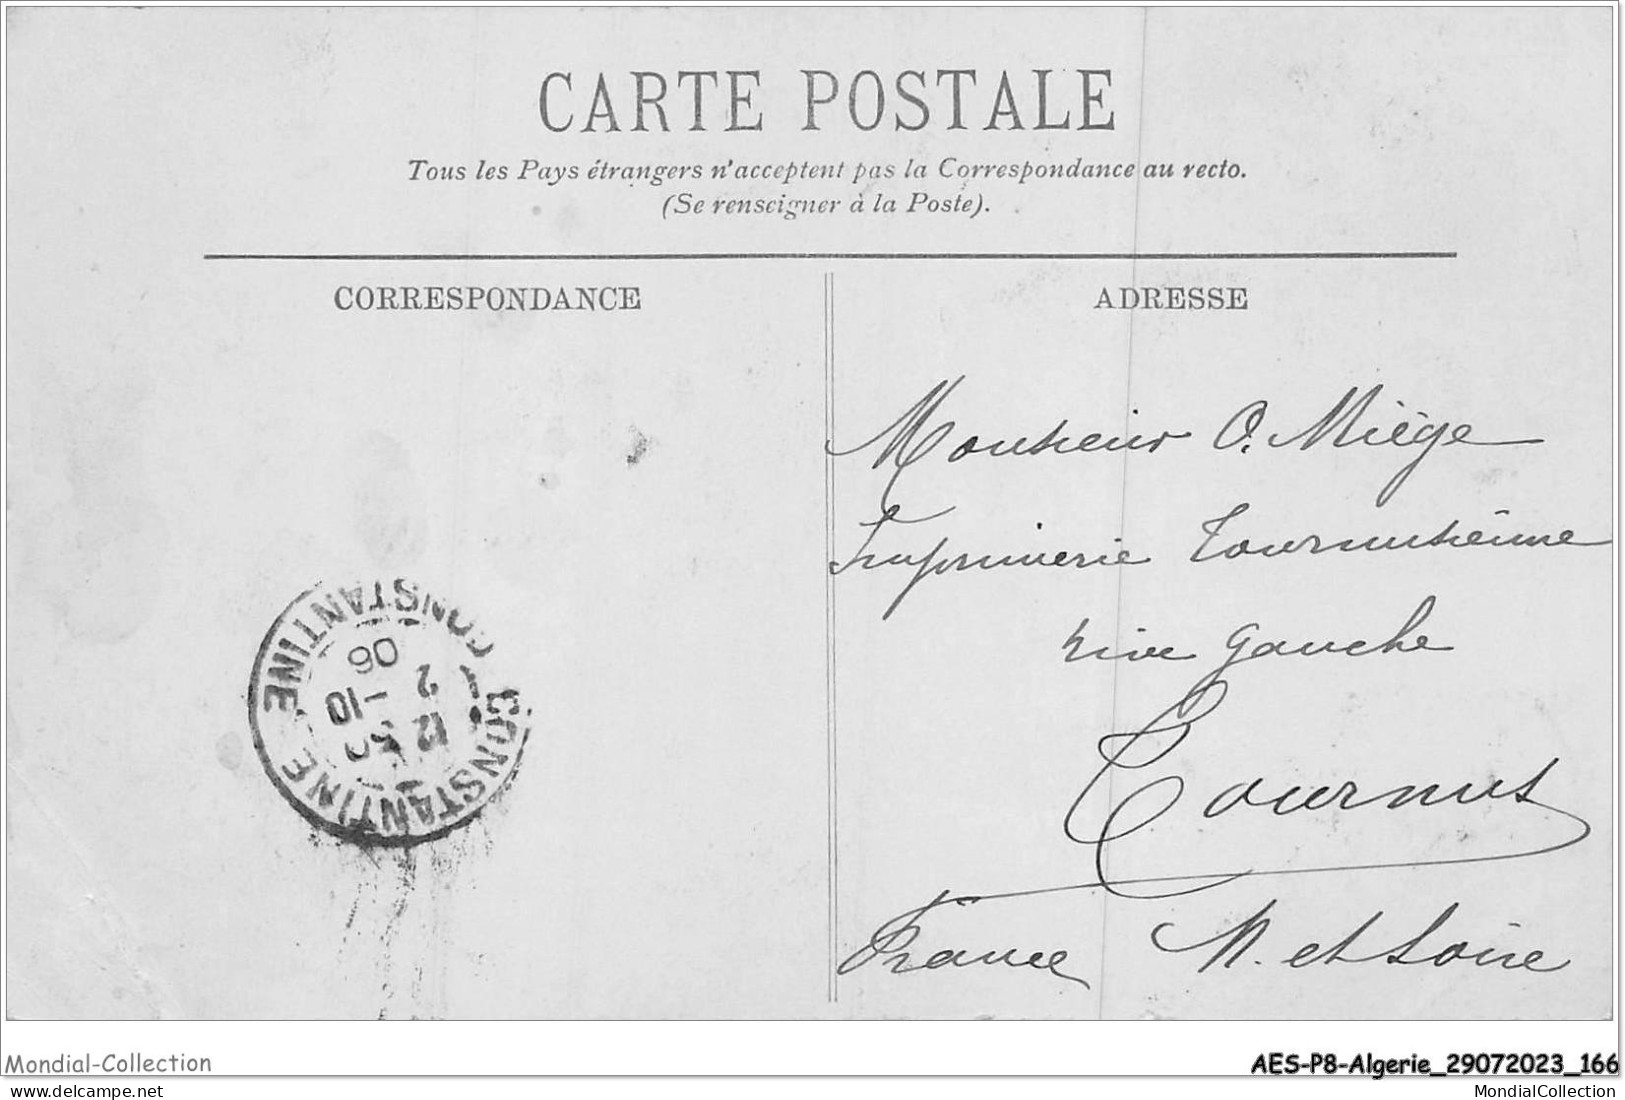 CARTE POSTALE
Tous les Pays étrangers n'acceptent pas la Correspondance au recto.
(Se renseigner à la Poste).
CORRESPONDANCE
ADRESSE
Monsieur O. Miège
Imprimerie Tournusienne
rive gauche
Tournus
France
et Loire
CONSTANTINE CONSTANTINE
12
2 -10
06
Mondial-Collection
AES-P8-Algerie_29072023_166
Mondial-Collection.net
MondialCollection